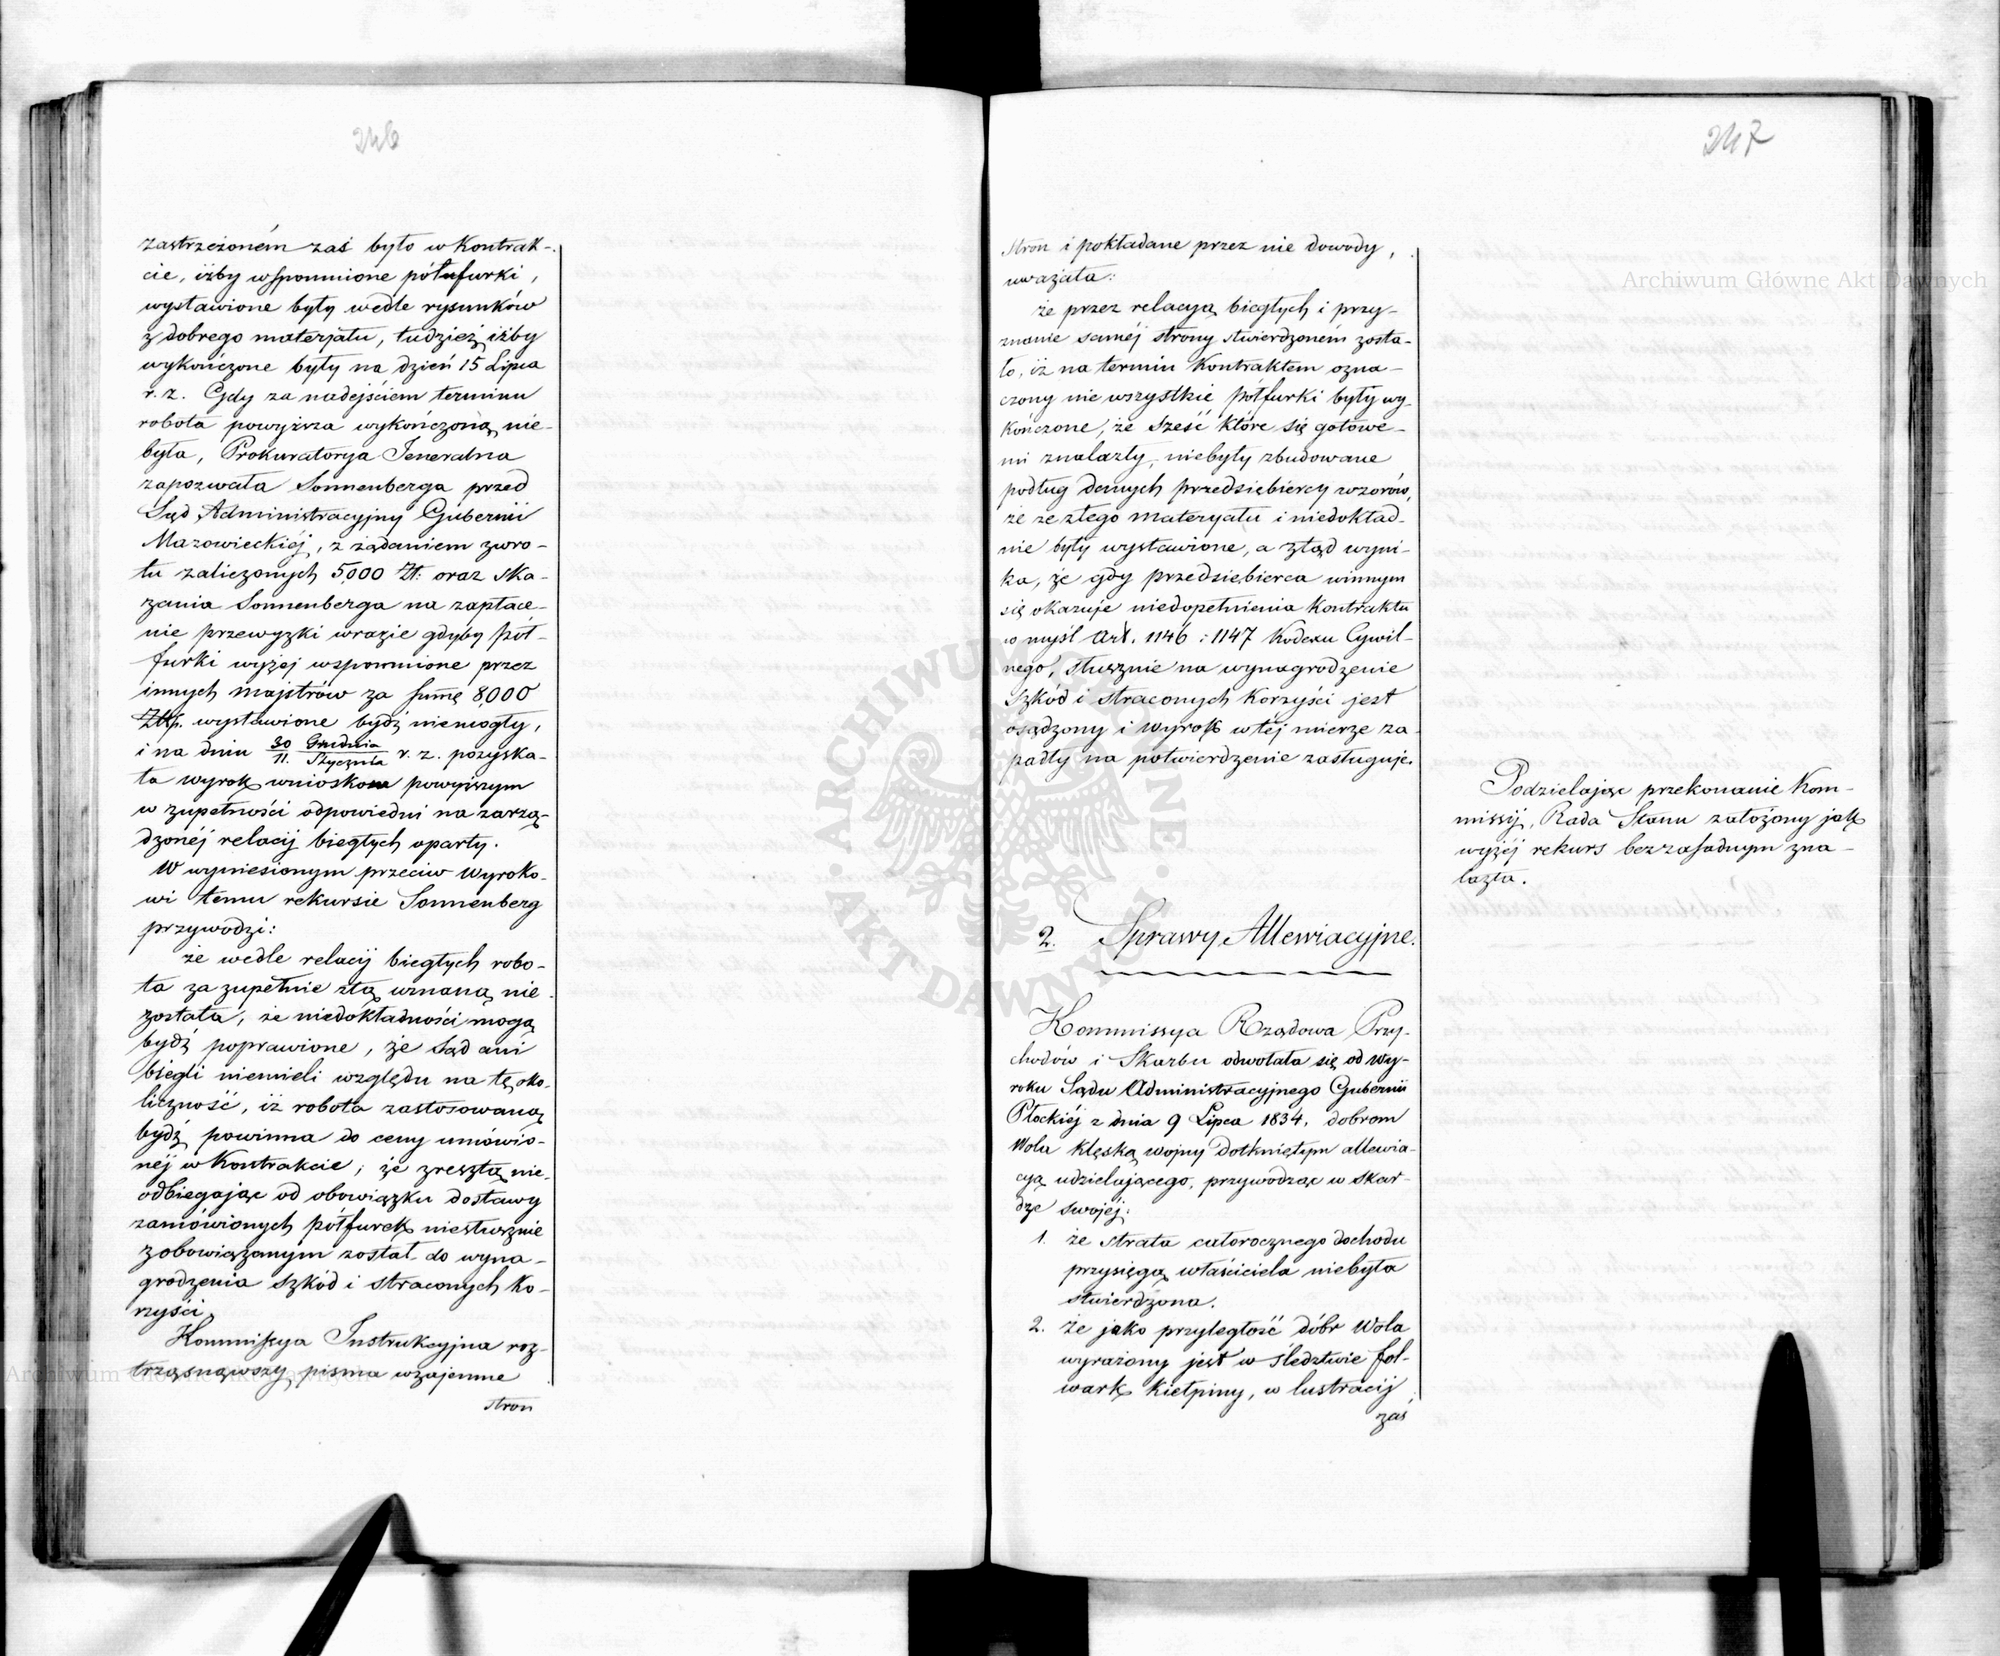 246
zastrzeżoném zaś było w Kontrak-
cie, iżby wspomnione półfurki,
wystawione były wedle rysunków
z dobrego materjału, tudzież iżby
wykończone były na dzień 15 Lipca
r. z. Gdy za nadejściem terminu
robota powyższa wykończoną nie-
była, Prokuratorya Jeneralna
zapozwała Sonnenberga przed
Sąd Administracyjny Gubernii
Mazowieckiéj, z żądaniem zwro-
tu zaliczonych 5,000 Zł: oraz ska-
zania Sonnenberga na zapłace-
nie przewyżki wrazie gdyby pół-
furki wyżej wspomnione przez
innych majstrów za summę 8,000
Złp. wystawione bydź niemogły,
i na dniu 30 Grudnia / 11. Stycznia r. z. pozyska-
ła wyrok wnioskom powyższym
w zupełności odpowiedni na zarzą-
dzonéj relacij biegłych oparty.
W wyniesionym przeciw wyroko-
wi temu rekursie Sonnenberg
przywodzi:
że wedle relacij biegłych robo-
ta za zupełnie złą uznaną nie
została, że niedokładności mogą
bydź poprawione, że Sąd ani
biegli niemieli względu na tę oko-
liczność, iż robota zastosowaną
bydź powinna do ceny umówio-
néj w Kontrakcie; że zresztą nie-
odbiegając od obowiązku dostawy
zamówionych półfurek niesłusznie
zobowiązanym został do wyna-
grodzenia szkód i straconych ko-
rzyści.
Kommissya Instrukcyjna roz-
trząsnąwszy pisma wzajemne
stron
247
stron i pokładane przez nie dowody,
uważała:
że przez relacyą biegłych i przy-
znanie saméj strony stwierdzoném zosta-
ło, iż na termin Kontraktem ozna-
czony nie wszystkie półfurki były wy-
kończone, że sześć które się gotowe-
mi znalazły, niebyły zbudowane
podług danych przedsiębiercy wzorów,
że ze złego materyału i niedokład-
nie były wystawione, a ztąd wyni-
ka, że gdy przedsiebierca winnym
się okazuje niedopełnienia Kontraktu
w myśl Art. 1146 i 1147 Kodexu Cywil-
nego, słusznie na wynagrodzenie
szkód i straconych Korzyści jest
osądzony i wyrok w téj mierze za-
padły na potwierdzenie zasługuje.
Podzielając przekonanie Kom-
missij, Rada Stanu założony jak
wyżéj rekurs bezzasadnym zna-
lazła.
2. Sprawy Allewiacyjne.
Kommissya Rządowa Przy-
chodów i Skarbu odwołała się od Wy-
roku Sądu Administracyjnego Gubernii
Płockiéj z dnia 9 Lipca 1834, dobrom
Wola klęską wojny dotkniętym allewia-
cyą udzielającego, przywodząc w skar-
dze swojéj:
1. że strata całorocznego dochodu
przysięgą właściciela niebyła
stwierdzona.
2. że jako przyległość dóbr Wola
wyrażony jest w śledztwie fol-
wark Kiełpiny, w lustracij
zaś
Archiwum Główne Akt Dawnych
Archiwum Główne Akt Dawnych
ARCHIWUM GŁÓWNE AKT DAWNYCH